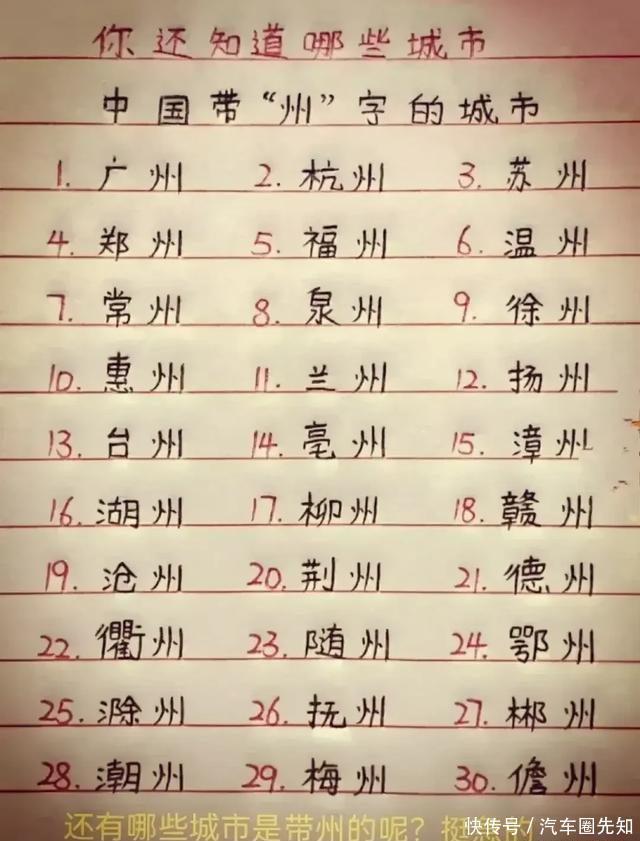 你还知道哪些城市
中国带“州”字的城市
1. 广州 2. 杭州 3. 苏州
4. 郑州 5. 福州 6. 温州
7. 常州 8. 泉州 9. 徐州
10. 惠州 11. 兰州 12. 扬州
13. 台州 14. 毫州 15. 漳州
16. 湖州 17. 柳州 18. 赣州
19. 沧州 20. 荆州 21. 德州
22. 衢州 23. 随州 24. 鄂州
25. 滁州 26. 抚州 27. 郴州
28. 潮州 29. 梅州 30. 儋州
还有哪些城市是带州的呢？挺
快传号 / 汽车圈先知